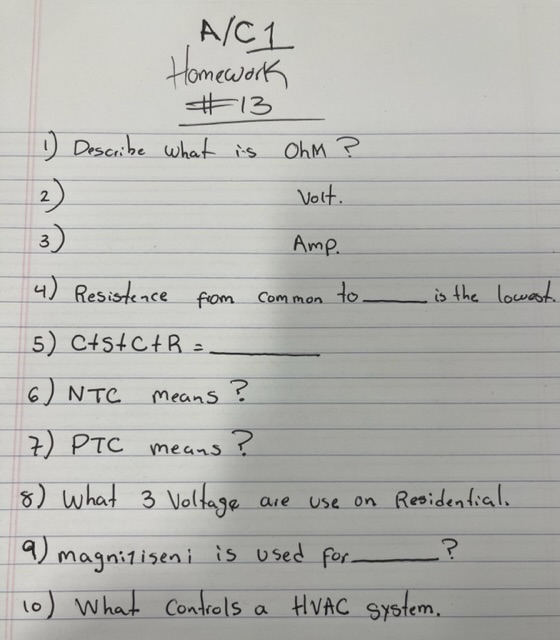 A/C1
Homework
#13
1) Describe what is OhM ?
2) Volt.
3) Amp.
4) Resistence from common to ____ is the lowest.
5) C+S+C+R = ________
6) NTC means ?
7) PTC means ?
8) What 3 Voltage are use on Residential.
9) magnitiseni is used for ______ ?
10) What Controls a HVAC system.